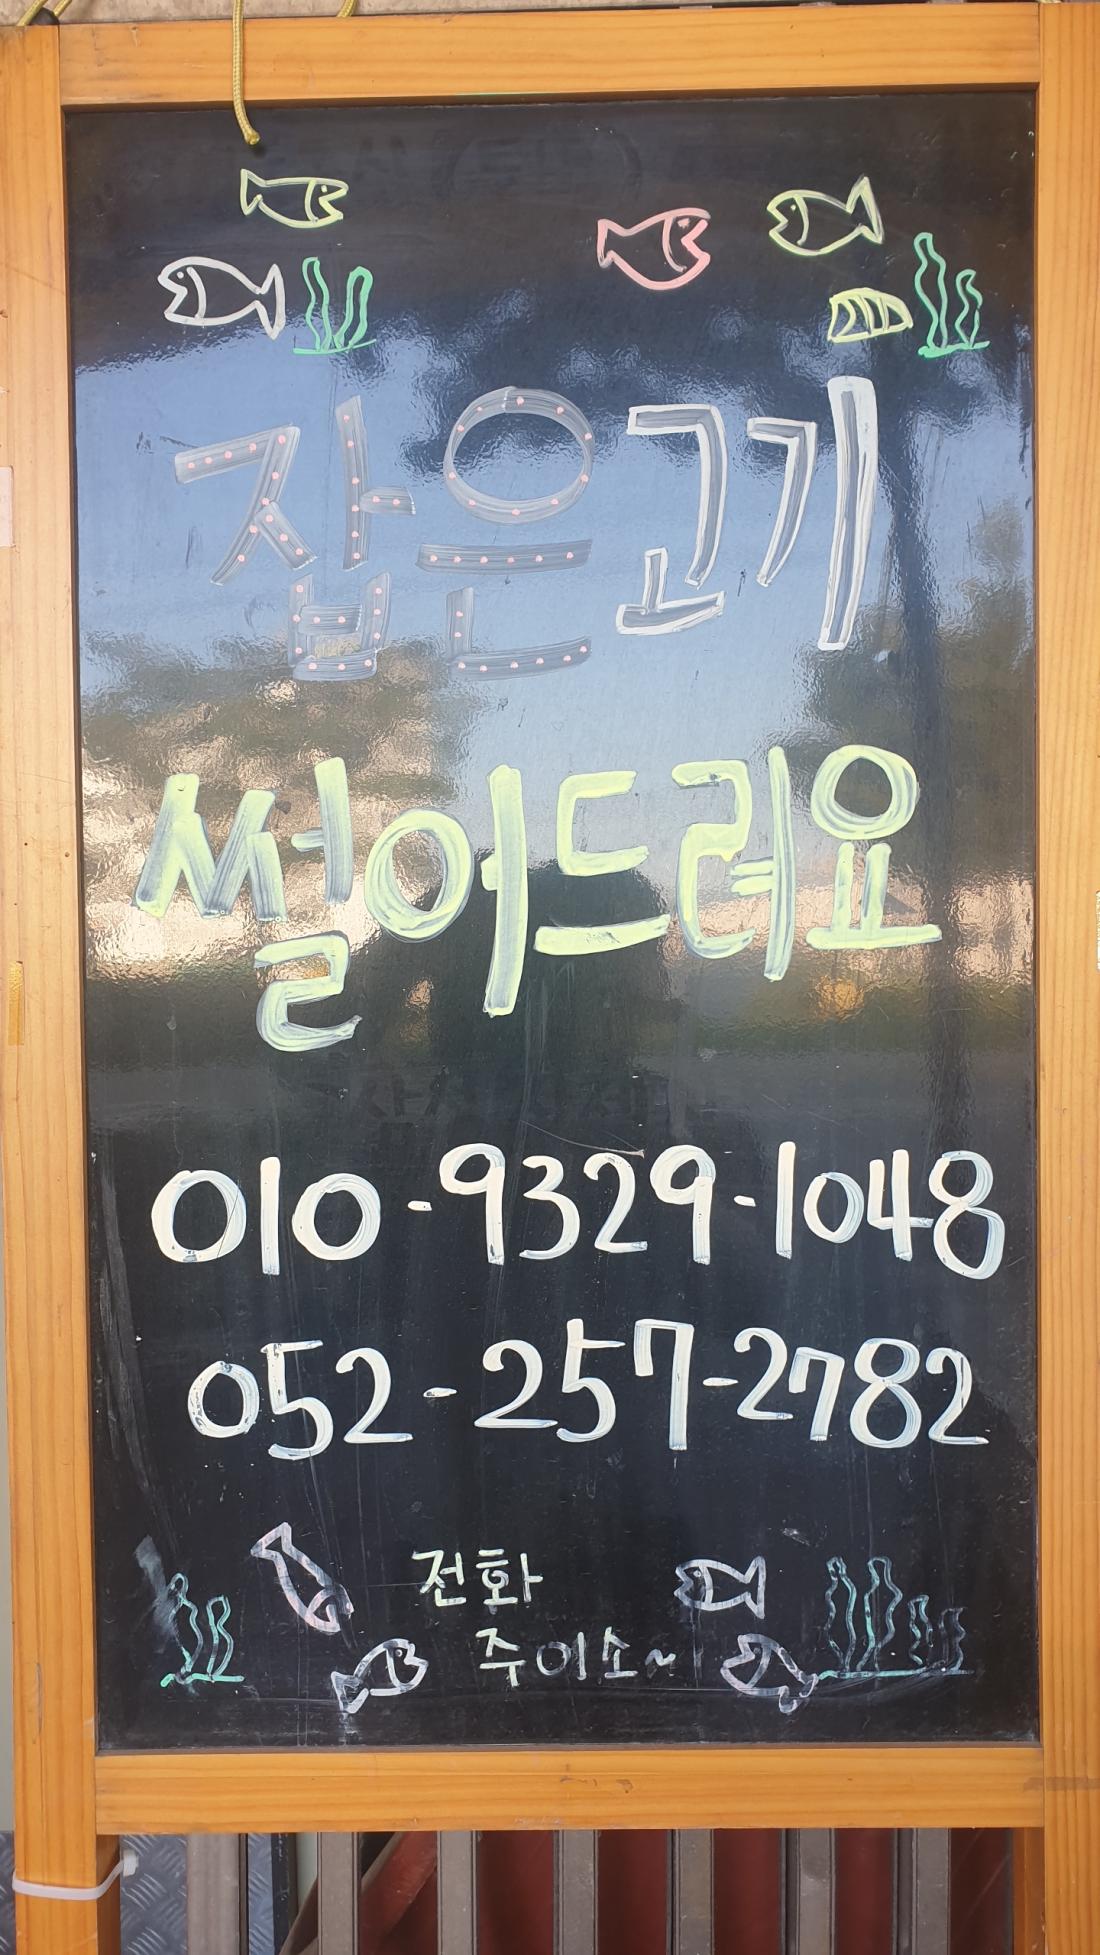 잡은고기
썰어드려요
010-9329-1048
052-257-2782
전화
주이소~